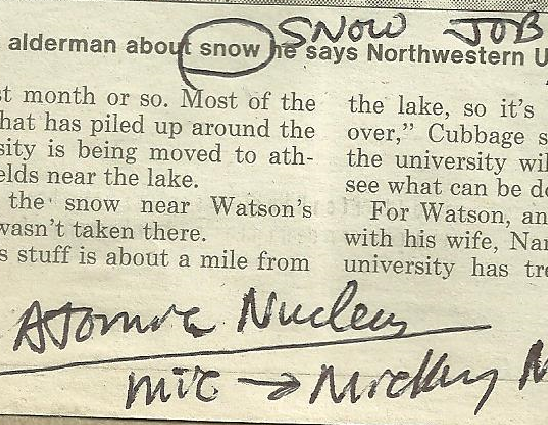 SNOW JOB
alderman about snow he says Northwestern U
st month or so. Most of the
hat has piled up around the
sity is being moved to ath-
elds near the lake.
the snow near Watson's
wasn't taken there.
s stuff is about a mile from
the lake, so it's
over," Cubbage s
the university wil
see what can be do
For Watson, an
with his wife, Nan
university has tre
Atomic Nucleus
mic → Mickey M